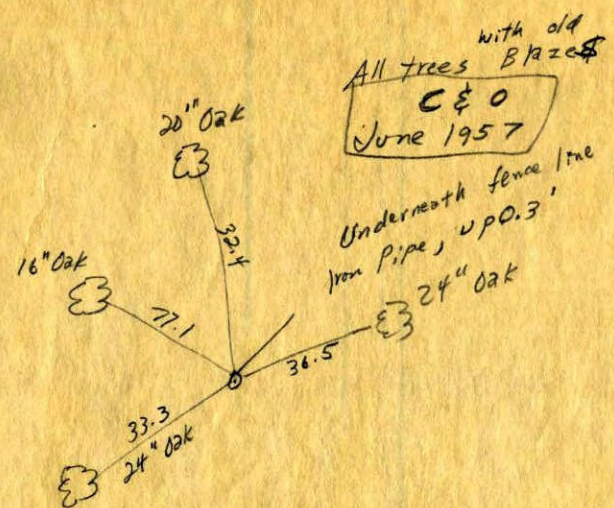 All trees with old Blazes
C & O
June 1957
20" Oak
32.4
Underneath fence line
Iron Pipe, up 0.3'
16" Oak
77.1
24" Oak
36.5
33.3
24" Oak